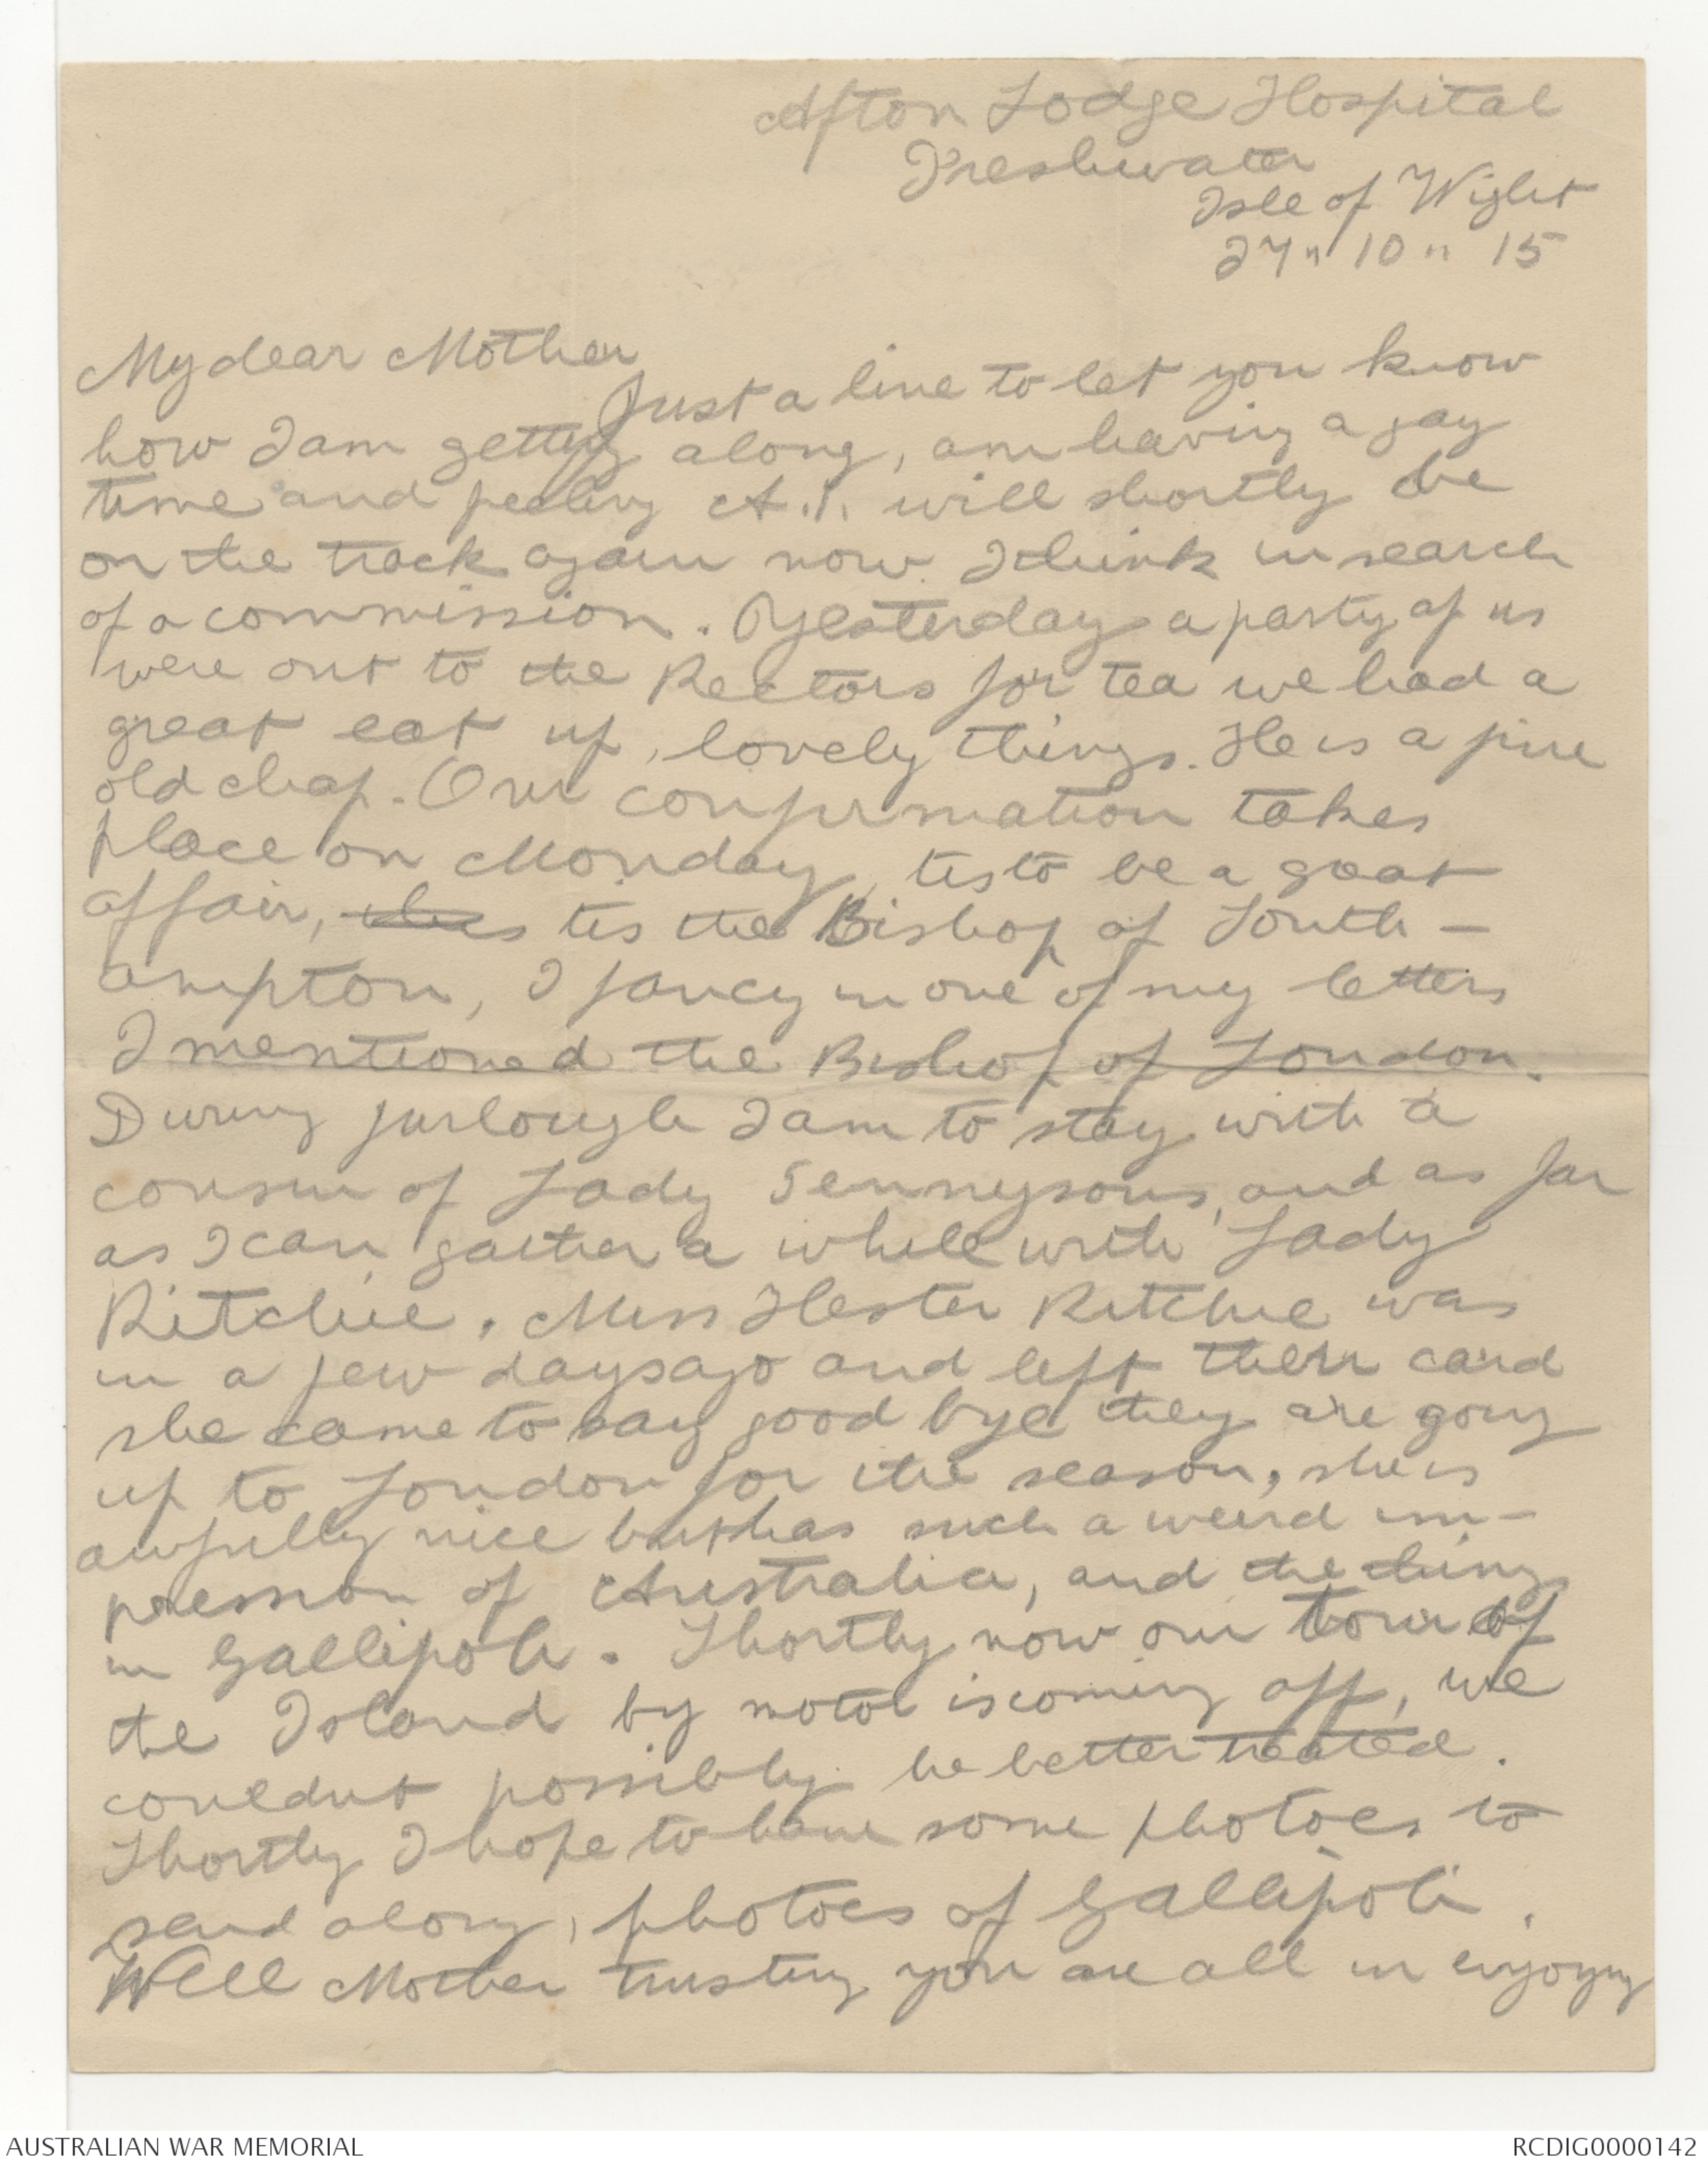 Afton Lodge Hospital
Freshwater
Isle of Wight
27 " 10 " 15
My dear Mother
Just a line to let you know
how I am getting along, am having a gay
time and feeling A.1. will shortly be
on the track again now I think in search
of a commission. Yesterday a party of us
were out to the Rectors for tea we had a
great eat up, lovely things. He is a fine
old chap. Our confirmation takes
place on Monday, tis to be a great
affair, tis the Bishop of South-
ampton, I fancy in one of my letters
I mentioned the Bishop of London.
During furlough I am to stay with a
cousin of Lady Tennysons, and as far
as I can gather a while with Lady
Ritchie. Miss Hester Ritchie was
in a few days ago and left their card
she came to say good bye they are going
up to London for the season, she is
awfully nice but has such a weird im-
pression of Australia, and the thing
in Gallipoli. Shortly now our tour of
the Island by motor is coming off, we
couldnt possibly be better treated.
Shortly I hope to have some photoes to
send along, photoes of Gallipoli.
Well Mother trusting you are all in enjoying
AUSTRALIAN WAR MEMORIAL
RCDIG0000142